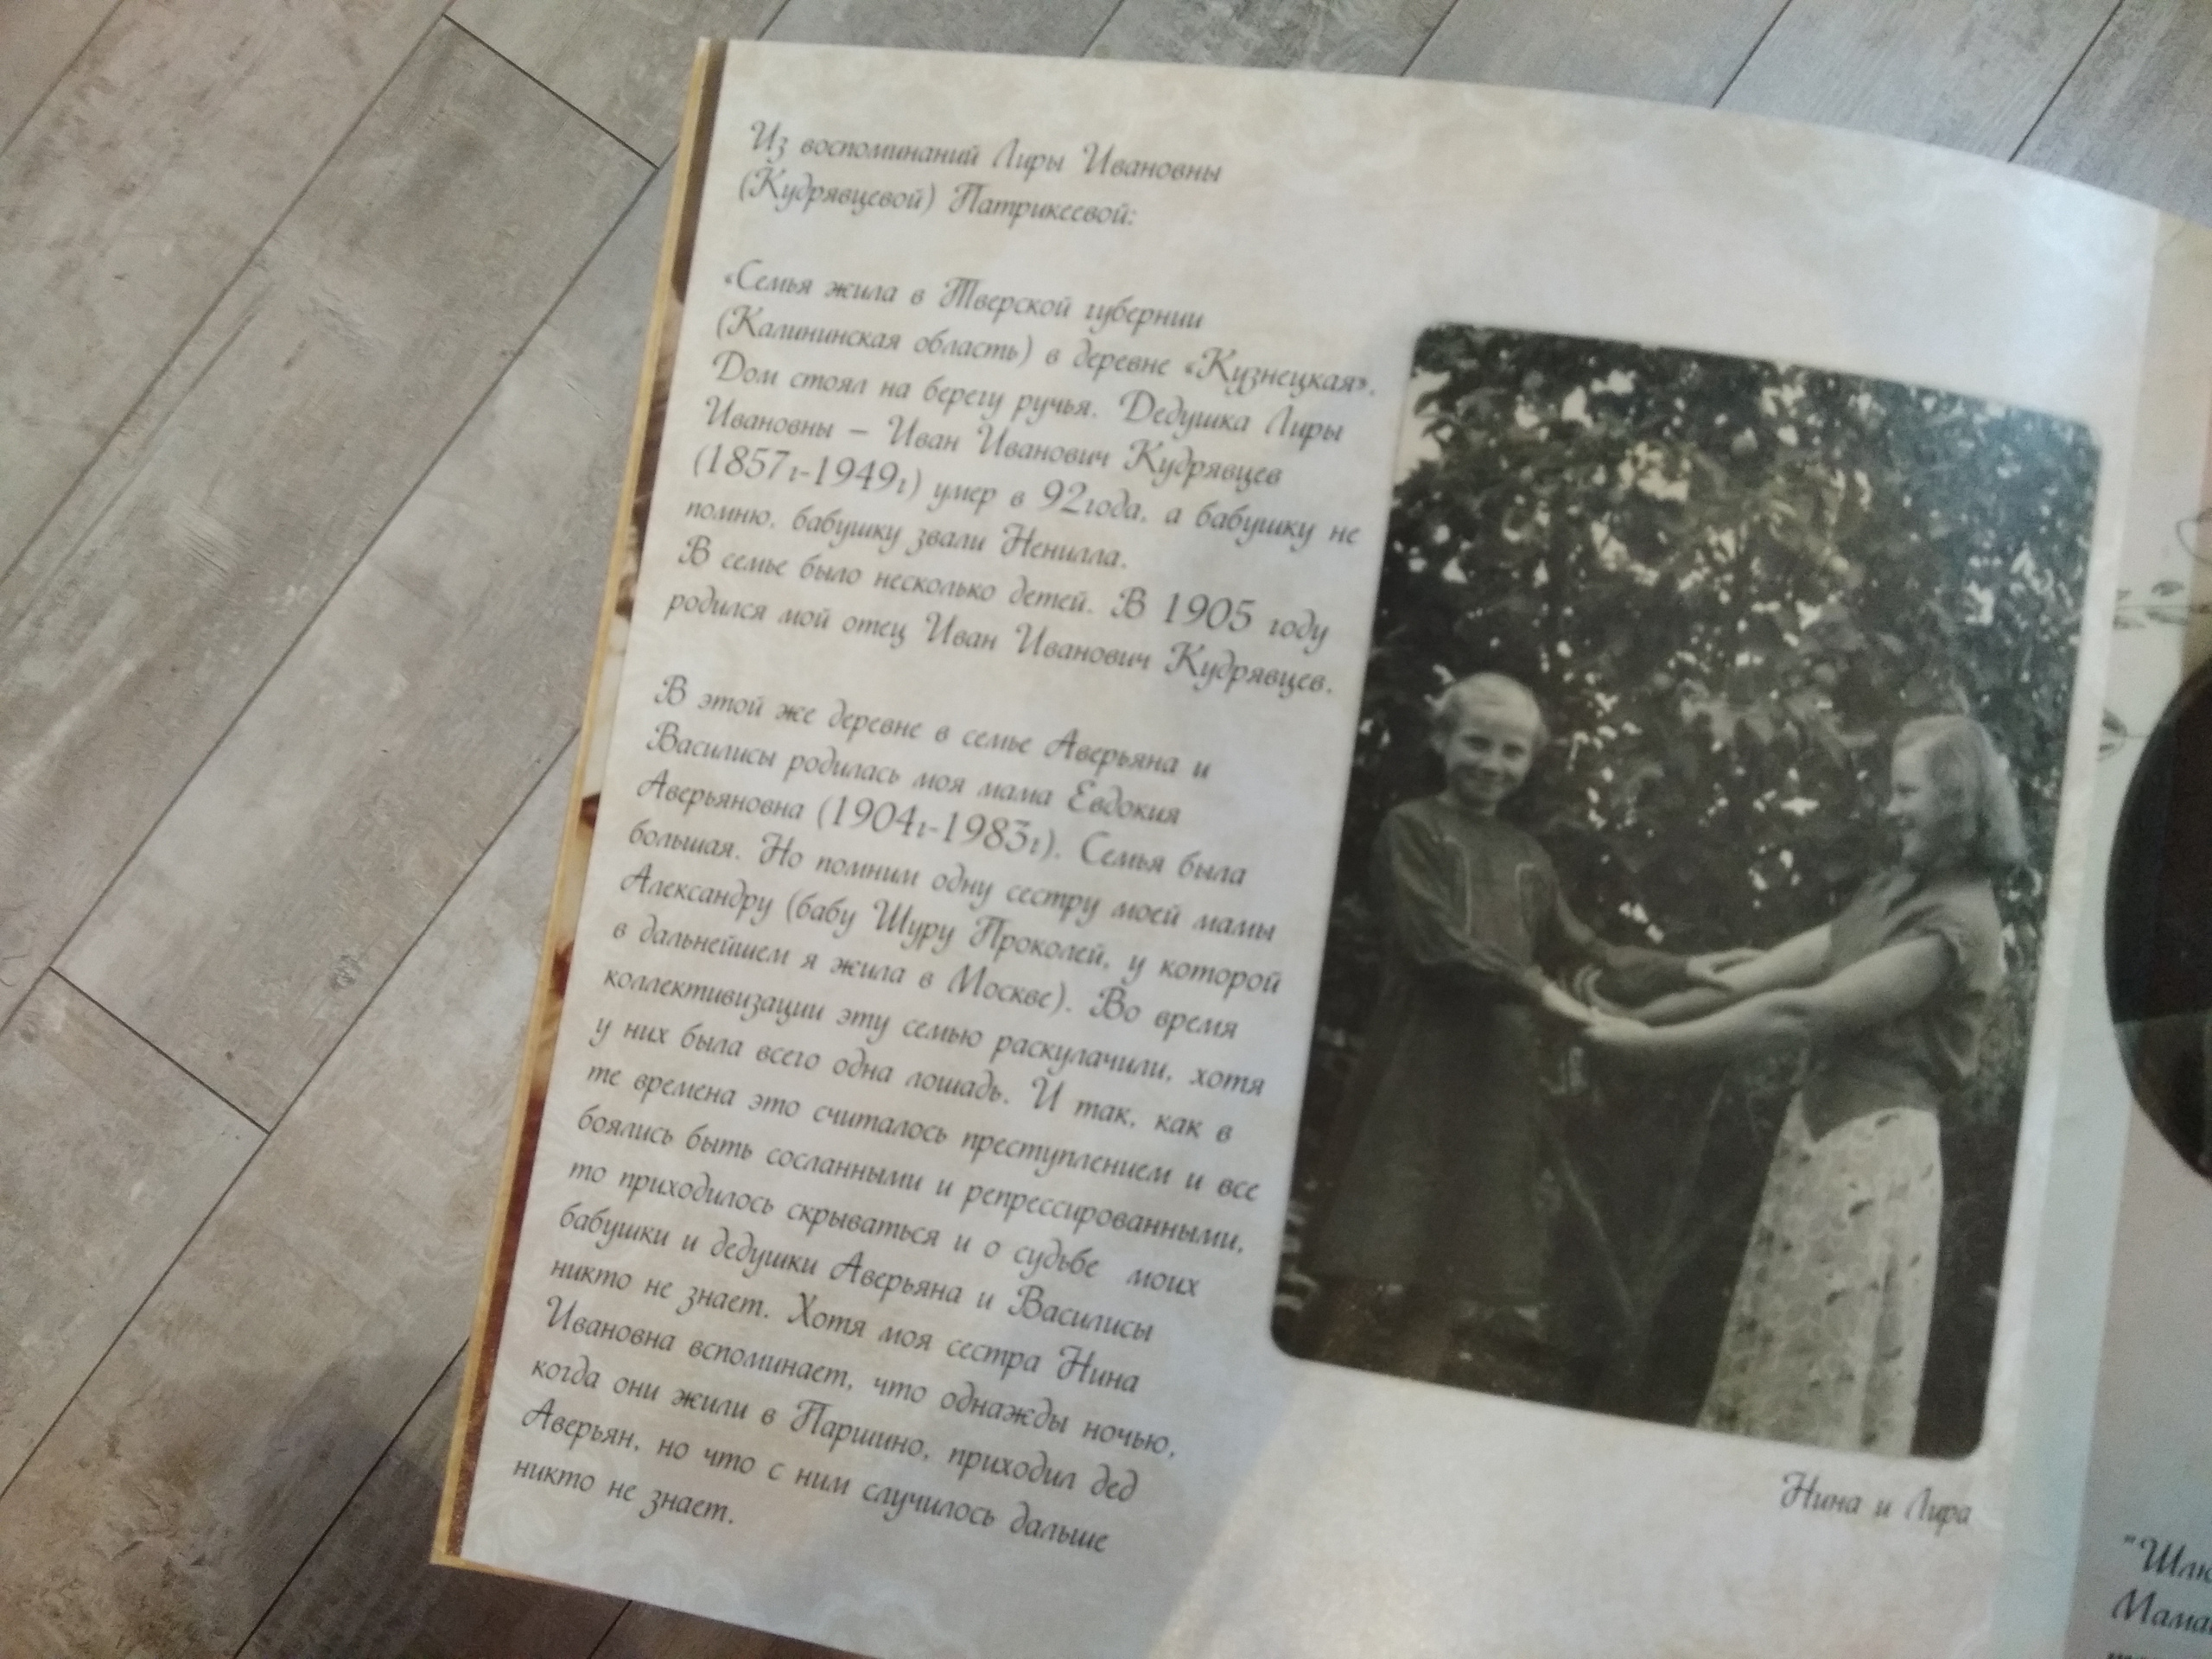 Из воспоминаний Лиры Ивановны
(Кудрявцевой) Патрикеевой:
«Семья жила в Тверской губернии
(Калининская область) в деревне «Кузнецкая».
Дом стоял на берегу ручья. Дедушка Лиры
Ивановны – Иван Иванович Кудрявцев
(1857г-1949г) умер в 92года, а бабушку не
помню, бабушку звали Ненилла.
В семье было несколько детей. В 1905 году
родился мой отец Иван Иванович Кудрявцев.
В этой же деревне в семье Аверьяна и
Василисы родилась моя мама Евдокия
Аверьяновна (1904г-1983г). Семья была
большая. Но помним одну сестру моей мамы
Александру (бабу Шуру Проколей, у которой
в дальнейшем я жила в Москве). Во время
коллективизации эту семью раскулачили, хотя
у них была всего одна лошадь. И так, как в
те времена это считалось преступлением и все
боялись быть сосланными и репрессированными,
то приходилось скрываться и о судьбе моих
бабушки и дедушки Аверьяна и Василисы
никто не знает. Хотя моя сестра Нина
Ивановна вспоминает, что однажды ночью,
когда они жили в Паршино, приходил дед
Аверьян, но что с ним случилось дальше
никто не знает.
Нина и Лира